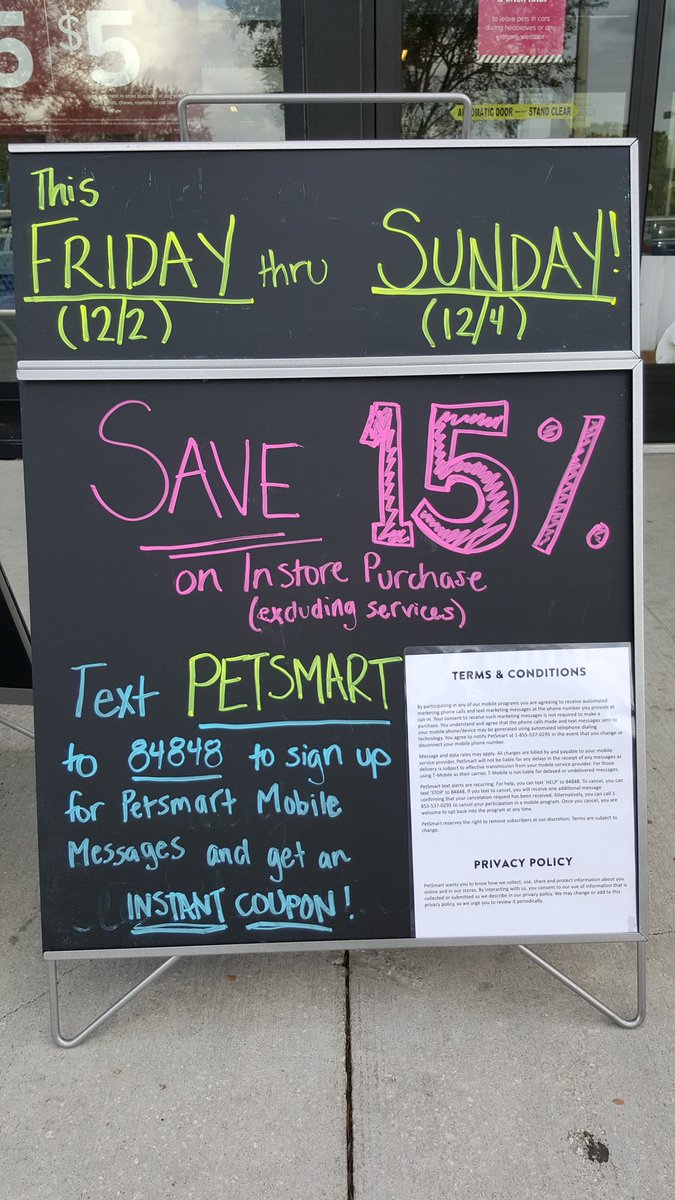 5 $5
to leave pets in cars
during heatwaves or any
extreme weather
AUTOMATIC DOOR STAND CLEAR
This
FRIDAY thru SUNDAY!
(12/2) (12/4)
SAVE 15%
on Instore Purchase
(excluding services)
Text PETSMART
to 84848 to sign up
for Petsmart Mobile
Messages and get an
INSTANT COUPON!
TERMS & CONDITIONS
By participating in any of our mobile programs you are agreeing to receive automated
marketing phone calls and text marketing messages at the phone number you provide at
opt-in. Your consent to receive such marketing messages is not required to make a
purchase. You understand and agree that the phone calls made and text messages sent to
your mobile phone/device may be generated using automated telephone dialing
technology. You agree to notify PetSmart at 1-855-537-0295 in the event that you change or
disconnect your mobile phone number.
Message and data rates may apply. All charges are billed by and payable to your mobile
service provider. PetSmart will not be liable for any delays in the receipt of any messages as
delivery is subject to effective transmission from your mobile service provider. For those
using T-Mobile as their carrier, T-Mobile is not liable for delayed or undelivered messages.
PetSmart text alerts are recurring. For help, you can text 'HELP' to 84848. To cancel, you can
text 'STOP' to 84848. If you text to cancel, you will receive one additional message
confirming that your cancelation request has been received. Alternatively, you can call 1-
855-537-0295 to cancel your participation in a mobile program. Once you cancel, you are
welcome to opt back into the program at any time.
PetSmart reserves the right to remove subscribers at our discretion. Terms are subject to
change.
PRIVACY POLICY
PetSmart wants you to know how we collect, use, share and protect information about you
online and in our stores. By interacting with us, you consent to our use of information that is
collected or submitted as we describe in our privacy policy. We may change or add to this
privacy policy, so we urge you to review it periodically.